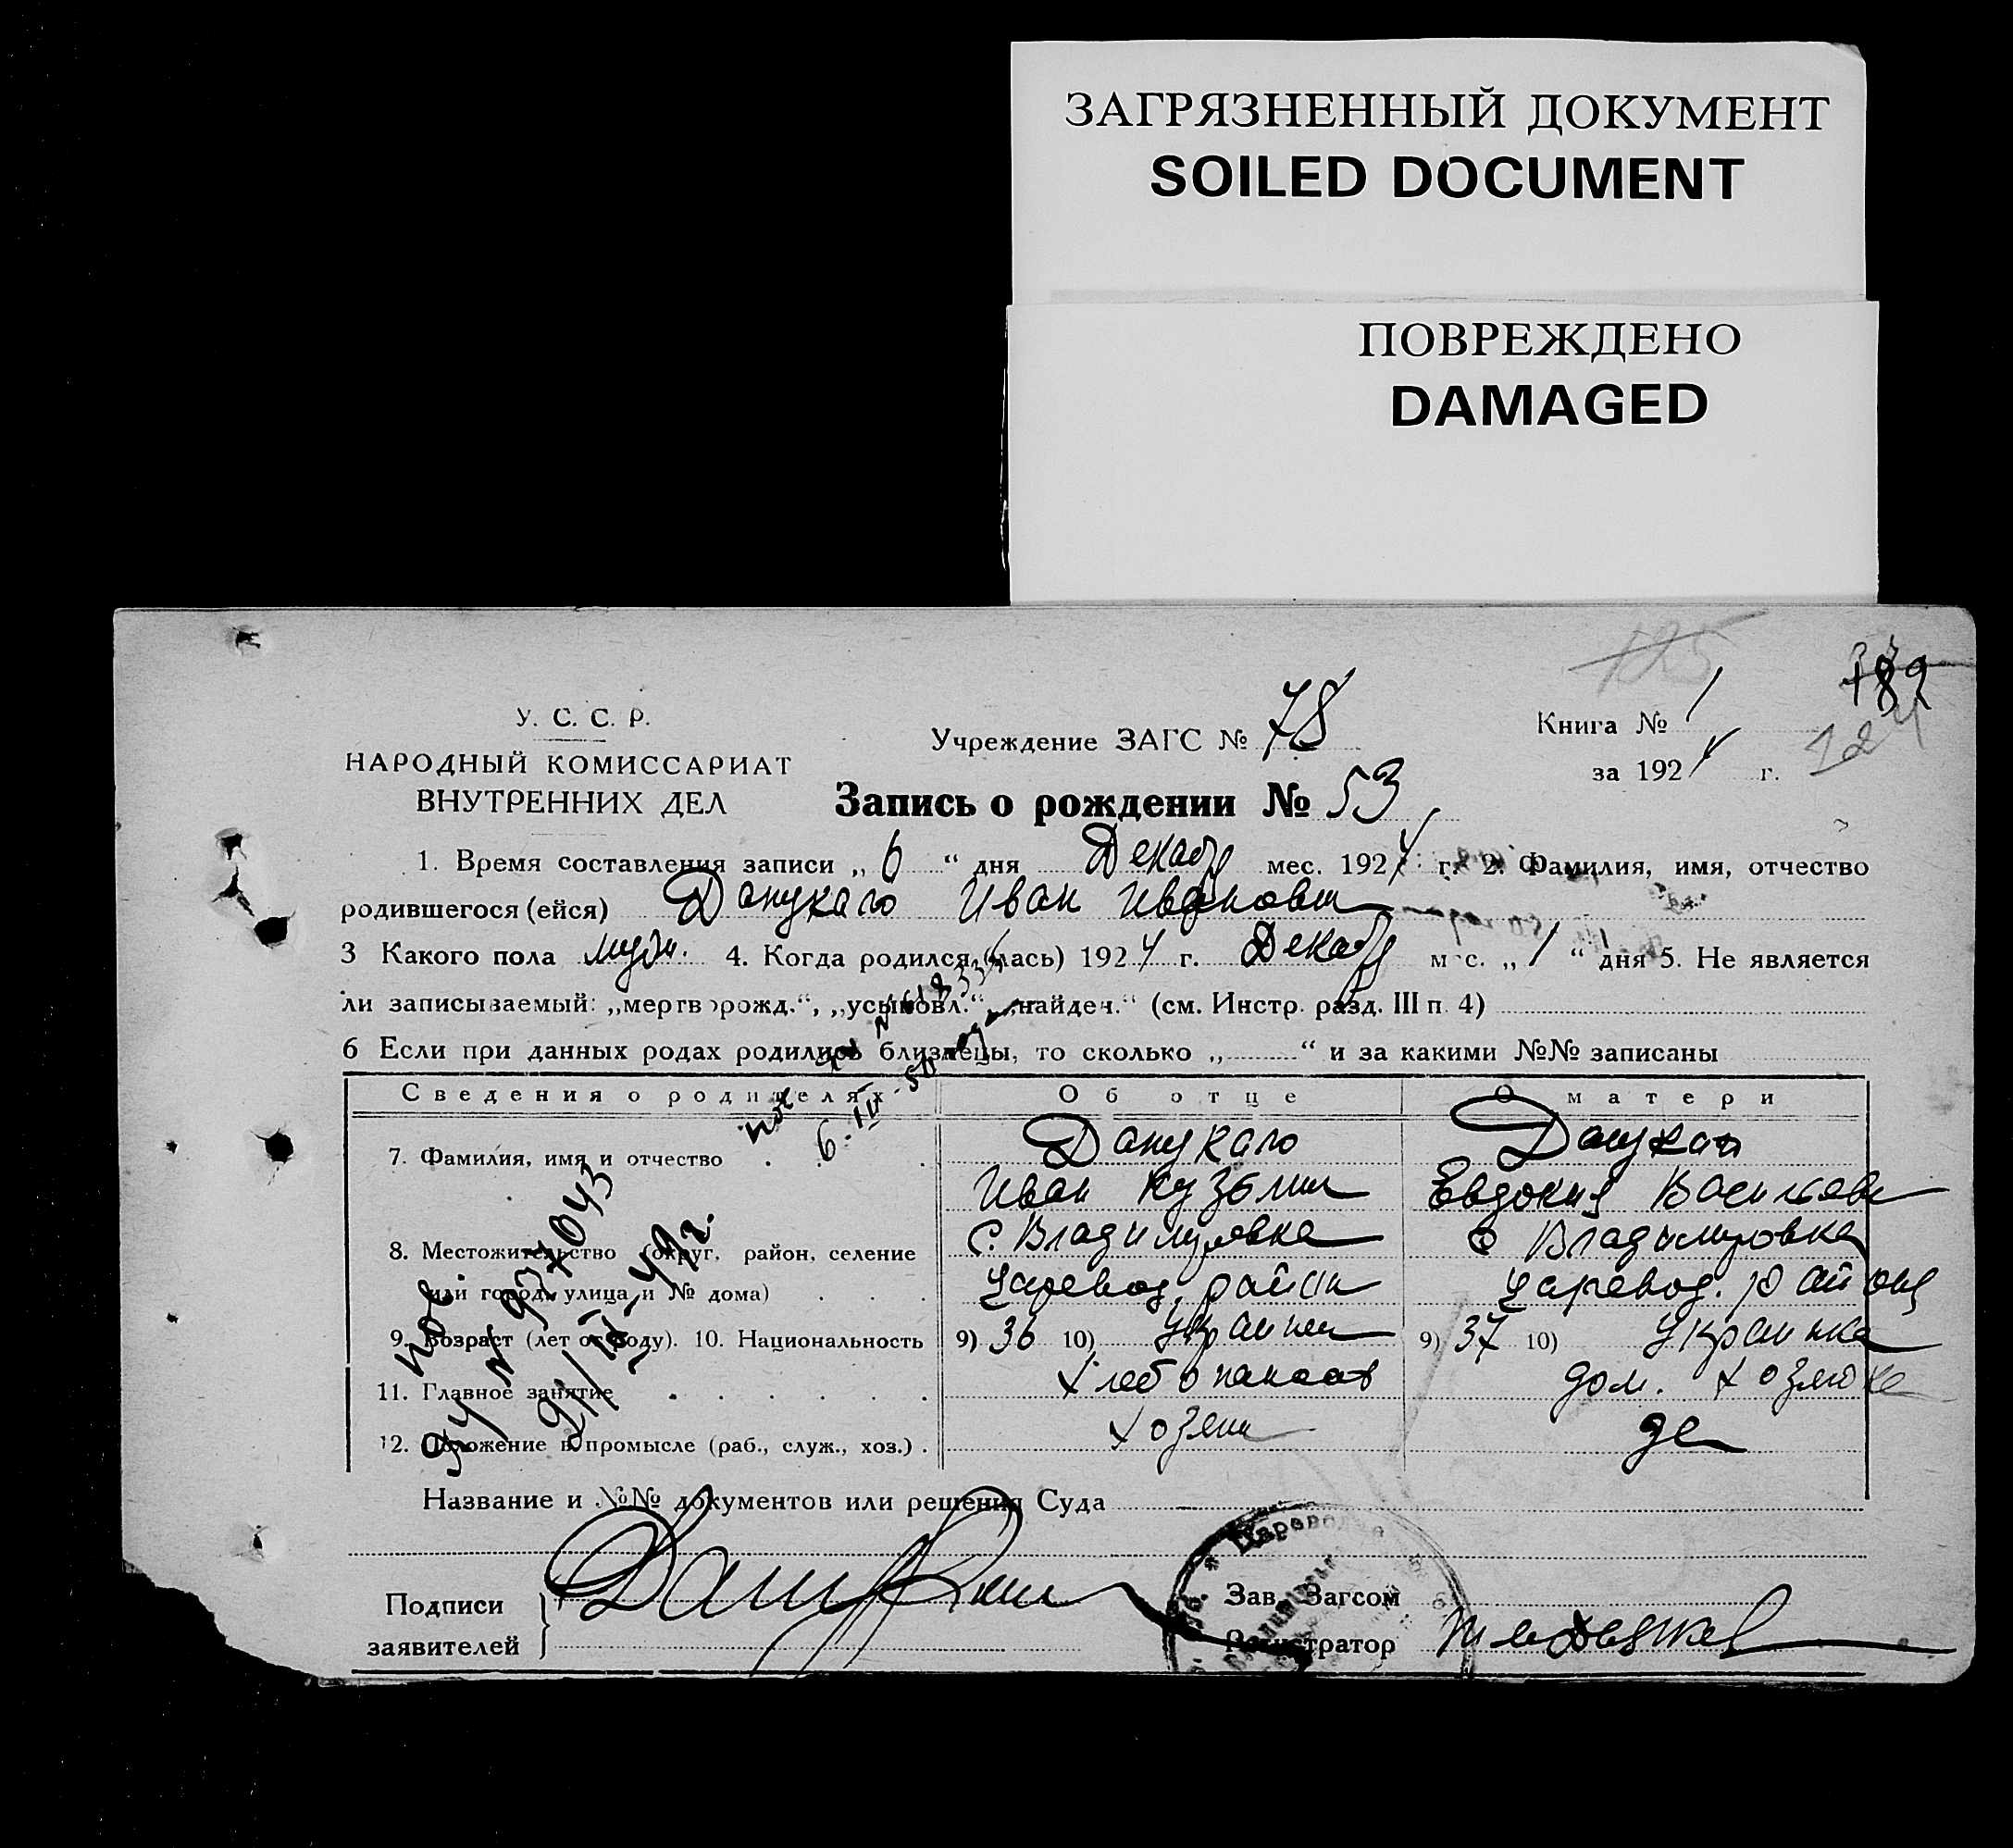 ЗАГРЯЗНЕННЫЙ ДОКУМЕНТ
SOILED DOCUMENT
ПОВРЕЖДЕНО
DAMAGED
125
182
124
У. С. С. Р.
НАРОДНЫЙ КОМИССАРИАТ
ВНУТРЕННИХ ДЕЛ
Учреждение ЗАГС № 78
Книга № 1
за 1924 г.
Запись о рождении № 53
1. Время составления записи „ 6 “ дня Декабр мес. 1924 г. 2. Фамилия, имя, отчество
родившегося (ейся) Данукало Иван Иванович
3 Какого пола муж. 4. Когда родился (лась) 1924 г. Декабр мес. „ 1 “ дня 5. Не является
ли записываемый: „мертворожд.“, „усыновл.“, „найден.“ (см. Инстр. разд. III п. 4)
6 Если при данных родах родились близнецы, то сколько „ “ и за какими №№ записаны
Сведения о родителях Об отце О матери
7. Фамилия, имя и отчество Данукало
Иван Кузьмич Евдокия Васильевн
8. Местожительство (округ, район, селение с. Владимировка с Владимировка
или город, улица и № дома) Царевод. район Царевод. район
9. Возраст (лет от роду). 10. Национальность 9) 36 10) Украинец 9) 37 10) Украинка
11. Главное занятие Хлебопашест дом. хозяюка
12. Положение в промысле (раб., служ., хоз.) хозяин
Название и №№ документов или решения Суда
Подписи
заявителей
Зав. Загсом
Регистратор